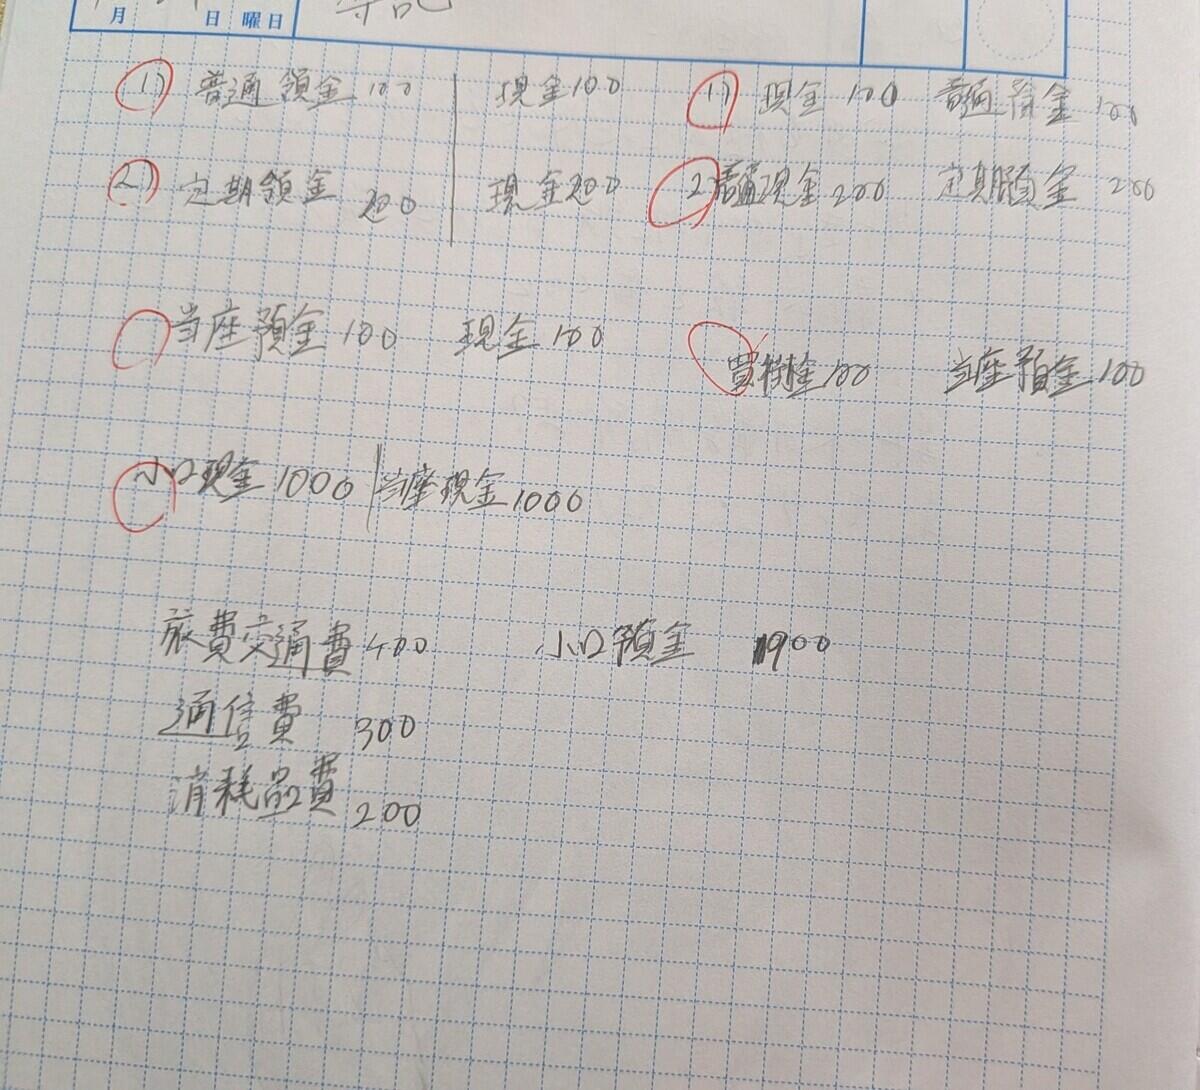 月 日 曜日 簿記
1) 普通領金 100 現金 100 1) 現金 100 普通預金 100
2) 定期領金 200 現金 200 2) 現金 200 定期預金 200
当座預金 100 現金 100
買掛金 100 当座預金 100
小口現金 1000 当座現金 1000
旅費交通費 400 小口預金 900
通信費 300
消耗品費 200